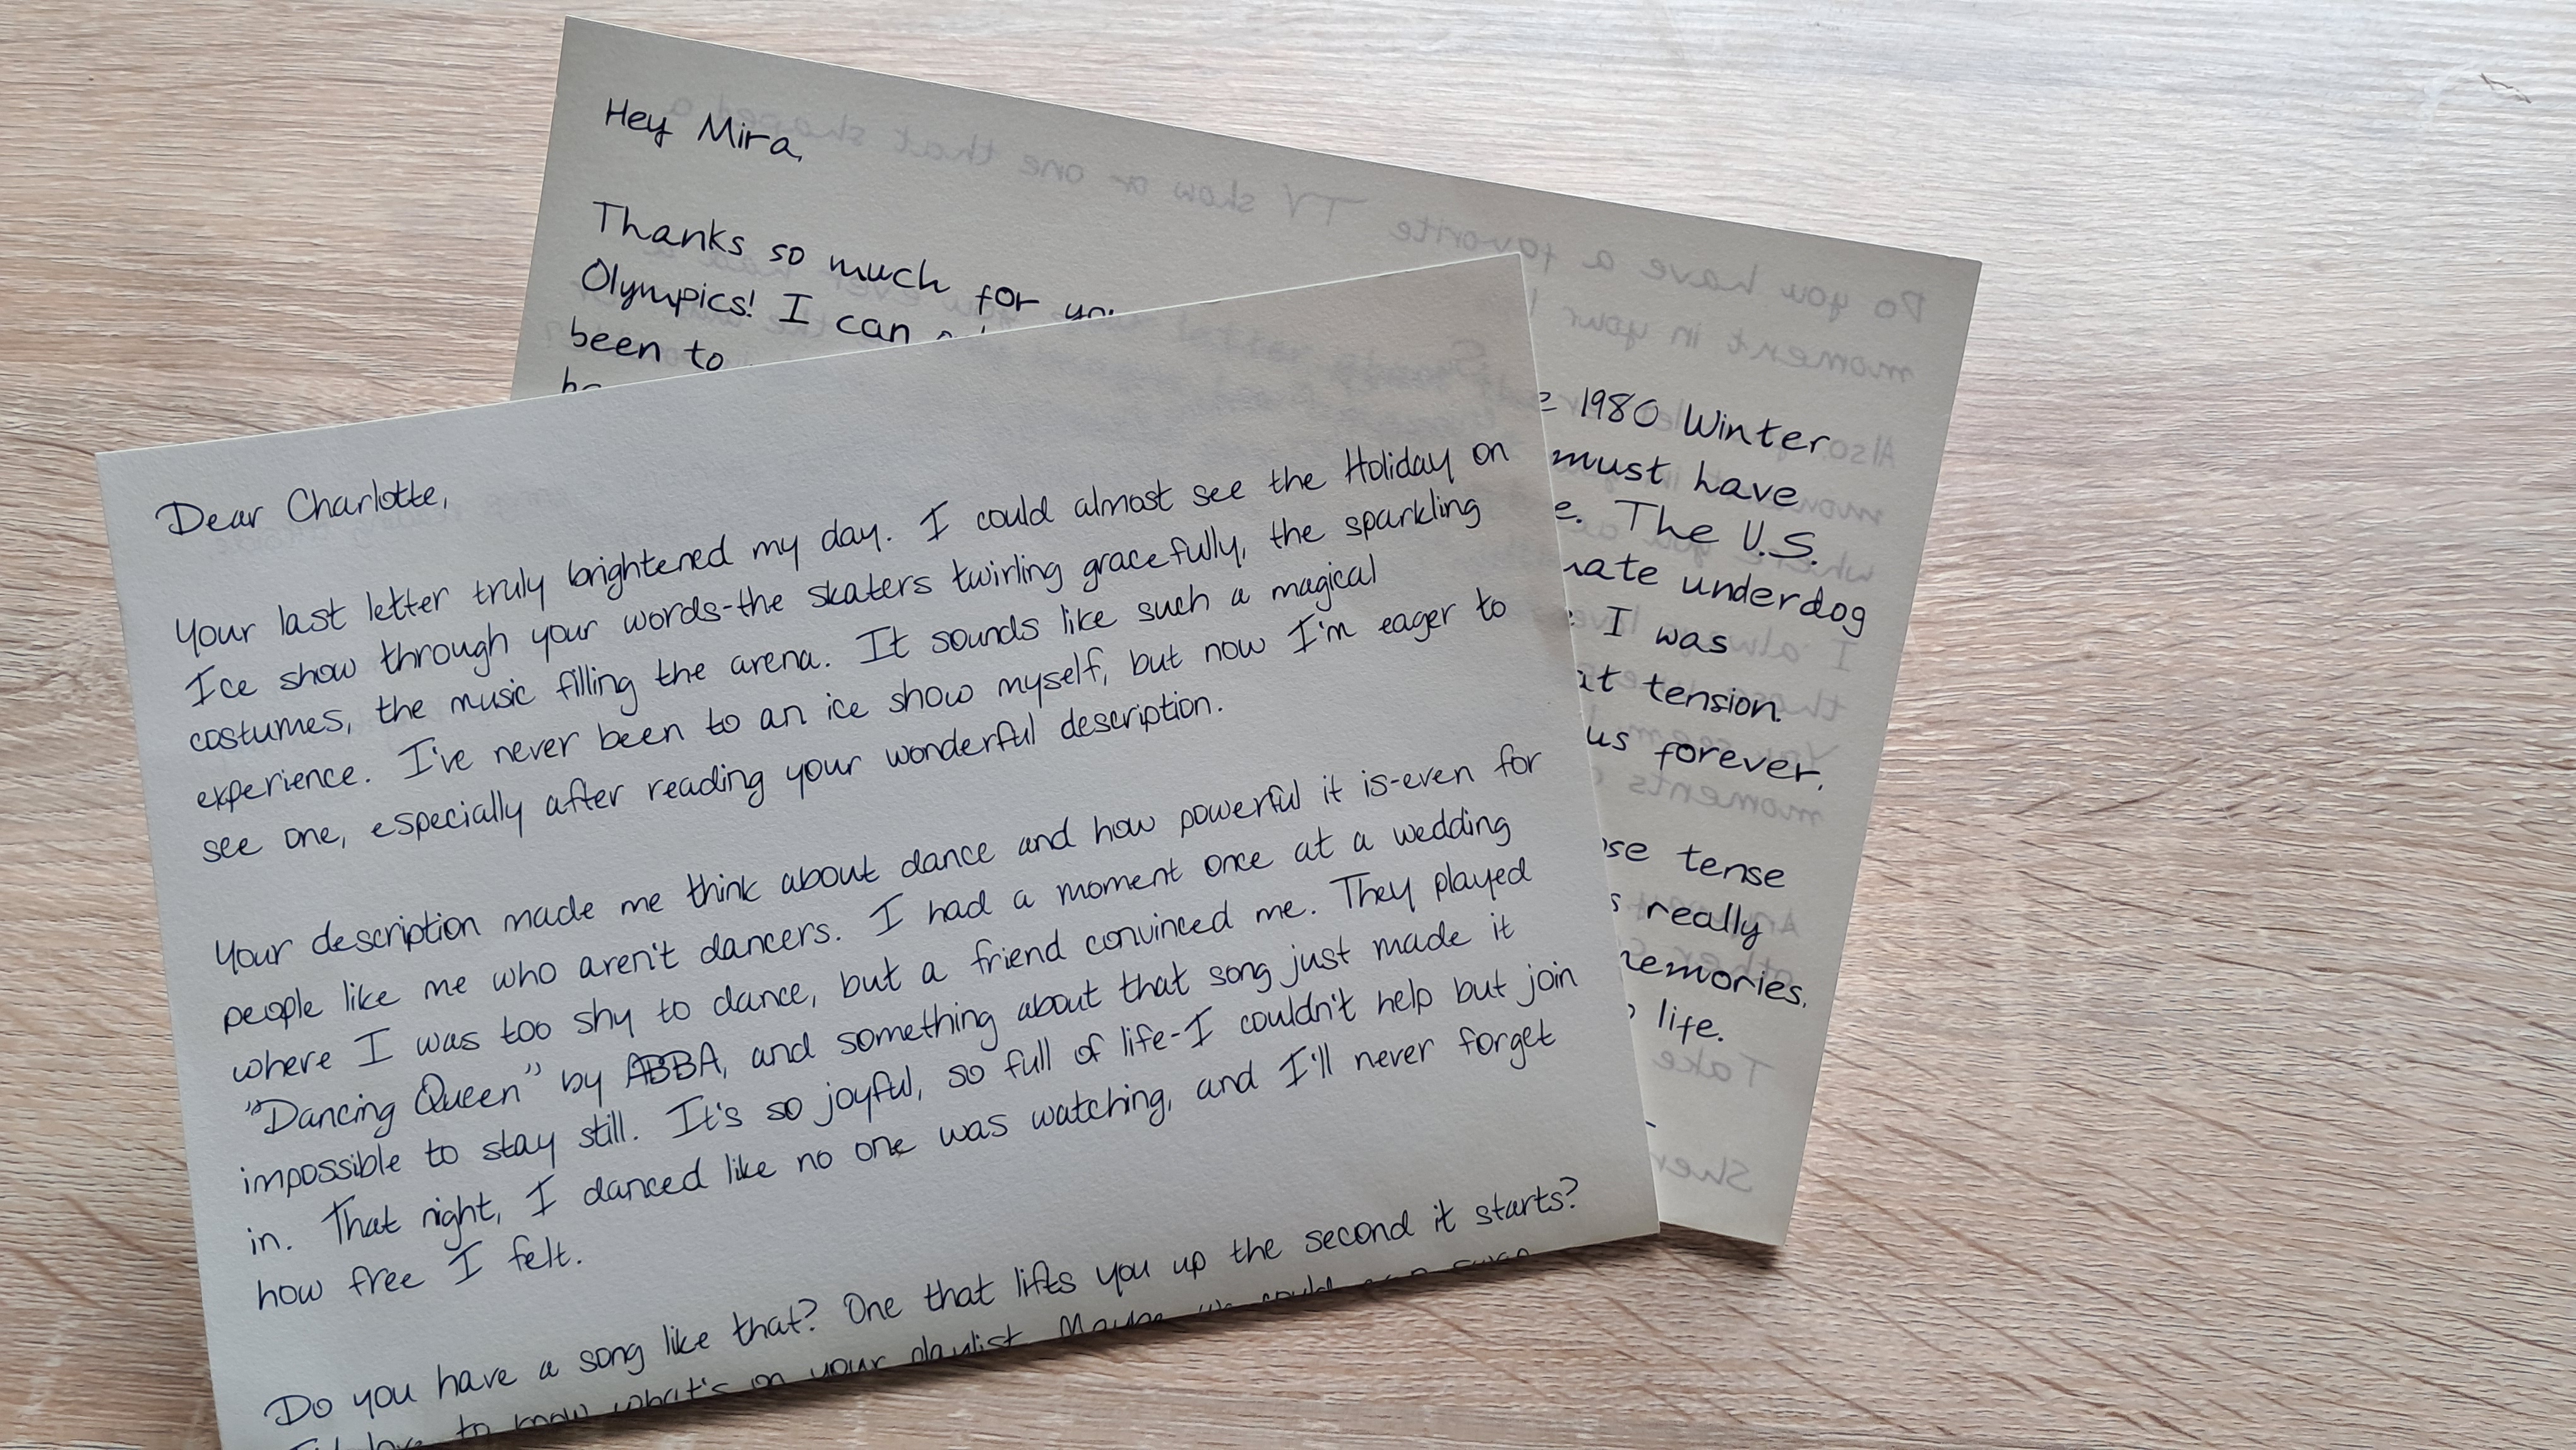 Hey Mira,
Thanks so much for
Olympics! I can
been to
1980 Winter
must have
The U.S.
underdog
I was
tension.
us forever.
tense
really
life.
Dear Charlotte,
Your last letter truly brightened my day. I could almost see the Holiday on
Ice show through your words-the skaters twirling gracefully, the sparkling
costumes, the music filling the arena. It sounds like such a magical
experience. I've never been to an ice show myself, but now I'm eager to
see one, especially after reading your wonderful description.
Your description made me think about dance and how powerful it is-even for
people like me who aren't dancers. I had a moment once at a wedding
where I was too shy to dance, but a friend convinced me. They played
"Dancing Queen" by ABBA, and something about that song just made it
impossible to stay still. It's so joyful, so full of life-I couldn't help but join
in. That night, I danced like no one was watching, and I'll never forget
how free I felt.
Do you have a song like that? One that lifts you up the second it starts?
to know what's on your playlist. Maybe we could